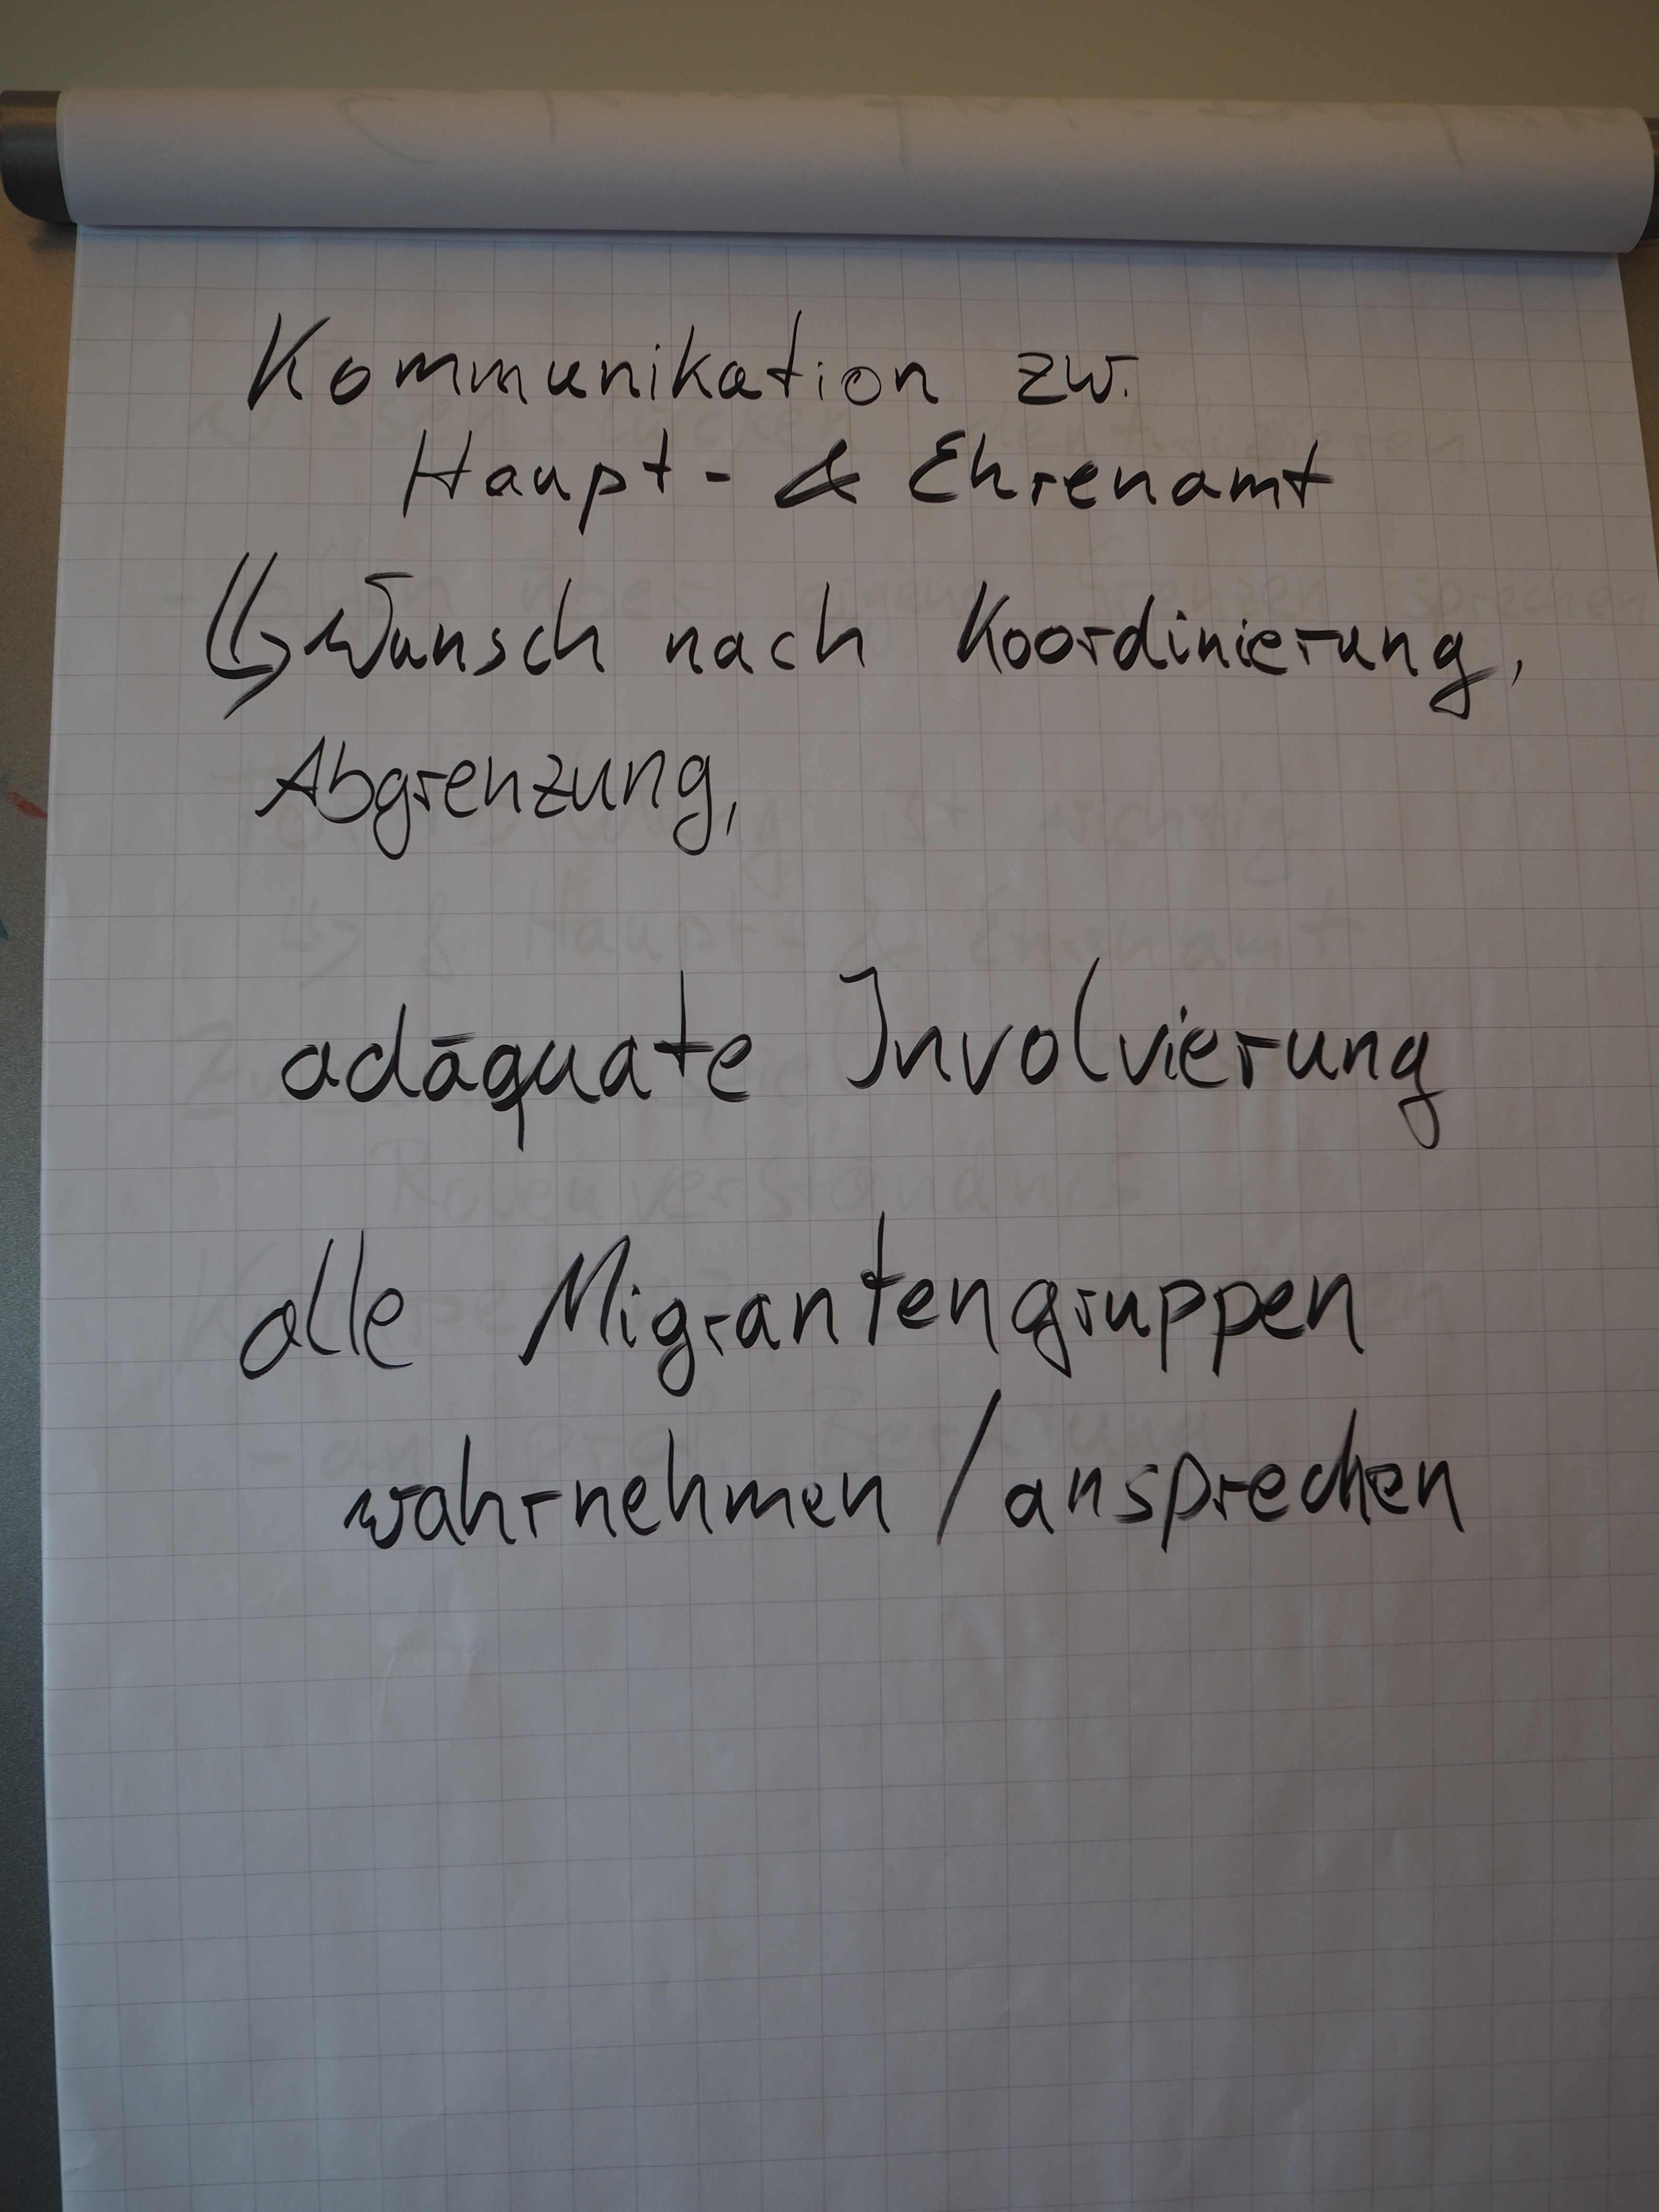 Kommunikation zw.
Haupt- & Ehrenamt
↳ Wunsch nach Koordinierung,
Abgrenzung,
adäquate Involvierung
alle Migrantengruppen
wahrnehmen / ansprechen